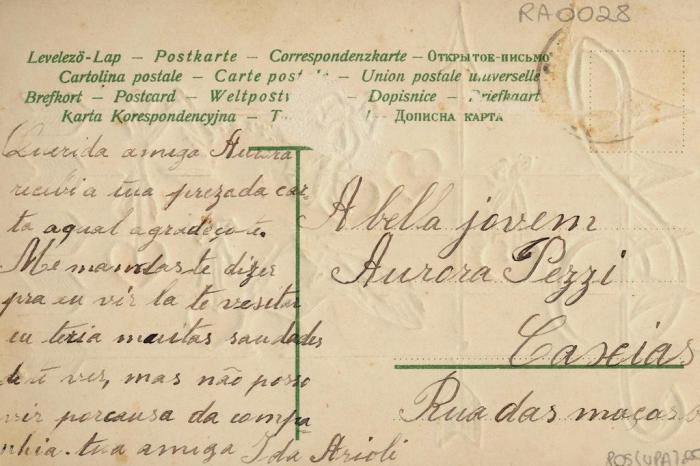 RA0028
Levelezö-Lap – Postkarte – Correspondenzkarte – Открытое-письмо
Cartolina postale – Carte postale – Union postale universelle
Brefkort – Postcard – Weltpostv – Dopisnice – Briefkaart
Karta Korespondencyjna – Дописна карта
Querida amiga Aurora
recivi a tua prezada car-
ta aqual agradeço-te.
Me mandaste dizer
pra eu vir la te vesitar
eu teria muitas saudades
de ti ver, mas não posso
vir porcausa da compa
nhia. tua amiga Ida Arioli
A bella jovem
Aurora Pezzi
Caxias
Rua das moças